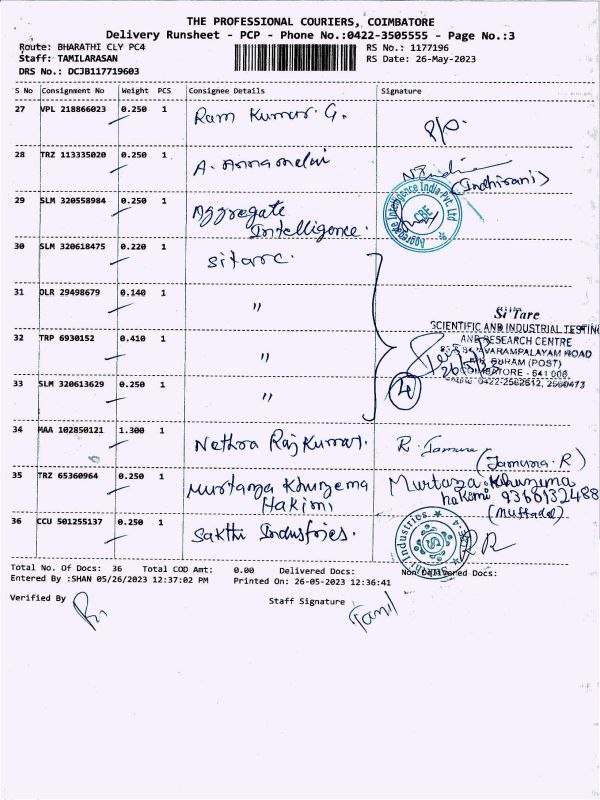 THE PROFESSIONAL COURIERS, COIMBATORE
Delivery Runsheet - PCP - Phone No.:0422-3505555 - Page No.:3
Route: BHARATHI CLY PC4
RS No.: 1177196
Staff: TAMILARASAN
RS Date: 26-May-2023
DRS No.: DCJB117719603
S No Consignment No Weight PCS Consignee Details Signature
27 VPL 218866023 0.250 1 Ram Kumar. G.
28 TRZ 113335020 0.250 1 A. (Indhirani)
29 SLM 320558984 0.250 1 Aggregate
Intelligence.
Aggregate Intelligence India Pvt. Ltd
CBE
30 SLM 320618475 0.220 1 Sitarc.
31 DLR 29498679 0.140 1 "
Si'Tarc
SCIENTIFIC AND INDUSTRIAL TESTING
AND RESEARCH CENTRE
32 TRP 6930152 0.410 1 "
AVARAMPALAYAM ROAD
PURAM (POST)
COIMBATORE - 641 006
0422-2562612, 2560473
33 SLM 320613629 0.250 1 "
4
34 MAA 102850121 1.300 1 Nethra Rajkumar. R. Jamuna
(Jamuna. R)
35 TRZ 65360964 0.250 1 Murtanza Khuzema Murtaza. Khuzema
Hakimi hakimi
36 CCU 501255137 0.250 1 Sakthi Industries.
Total No. Of Docs: 36 Total COD Amt: 0.00 Delivered Docs: Non Delivered Docs:
Entered By :SHAN 05/26/2023 12:37:02 PM Printed On: 26-05-2023 12:36:41
Verified By
Staff Signature
Tamil